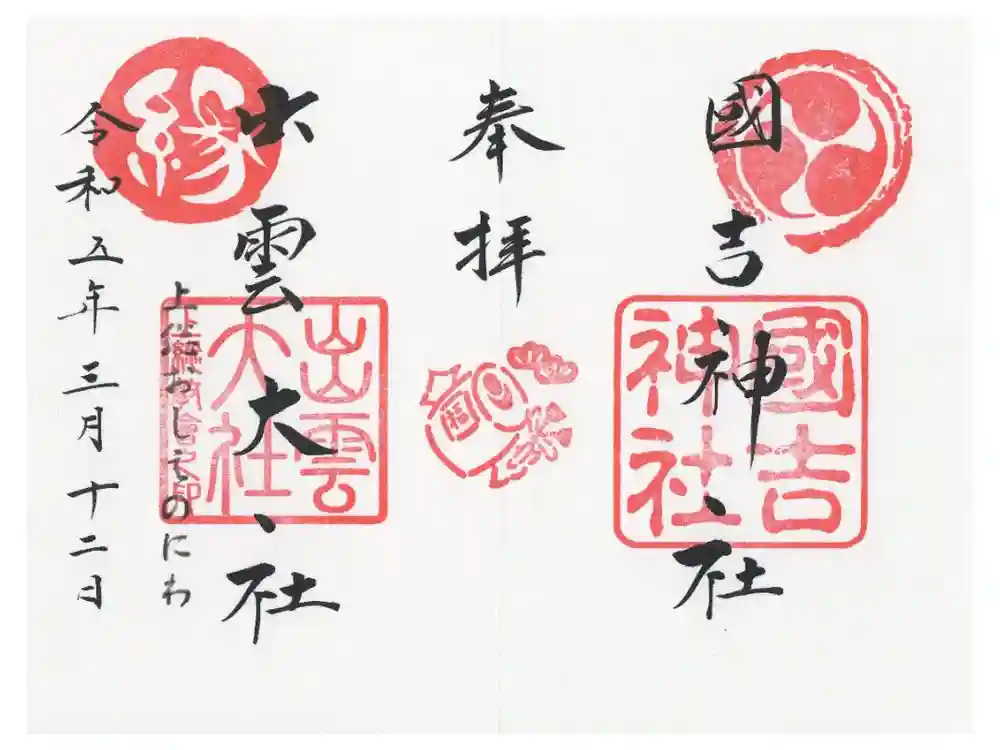 國吉神社
國吉神社
奉拝
出雲大社
縁
出雲大社
上総おしえのにわ
令和五年三月十二日